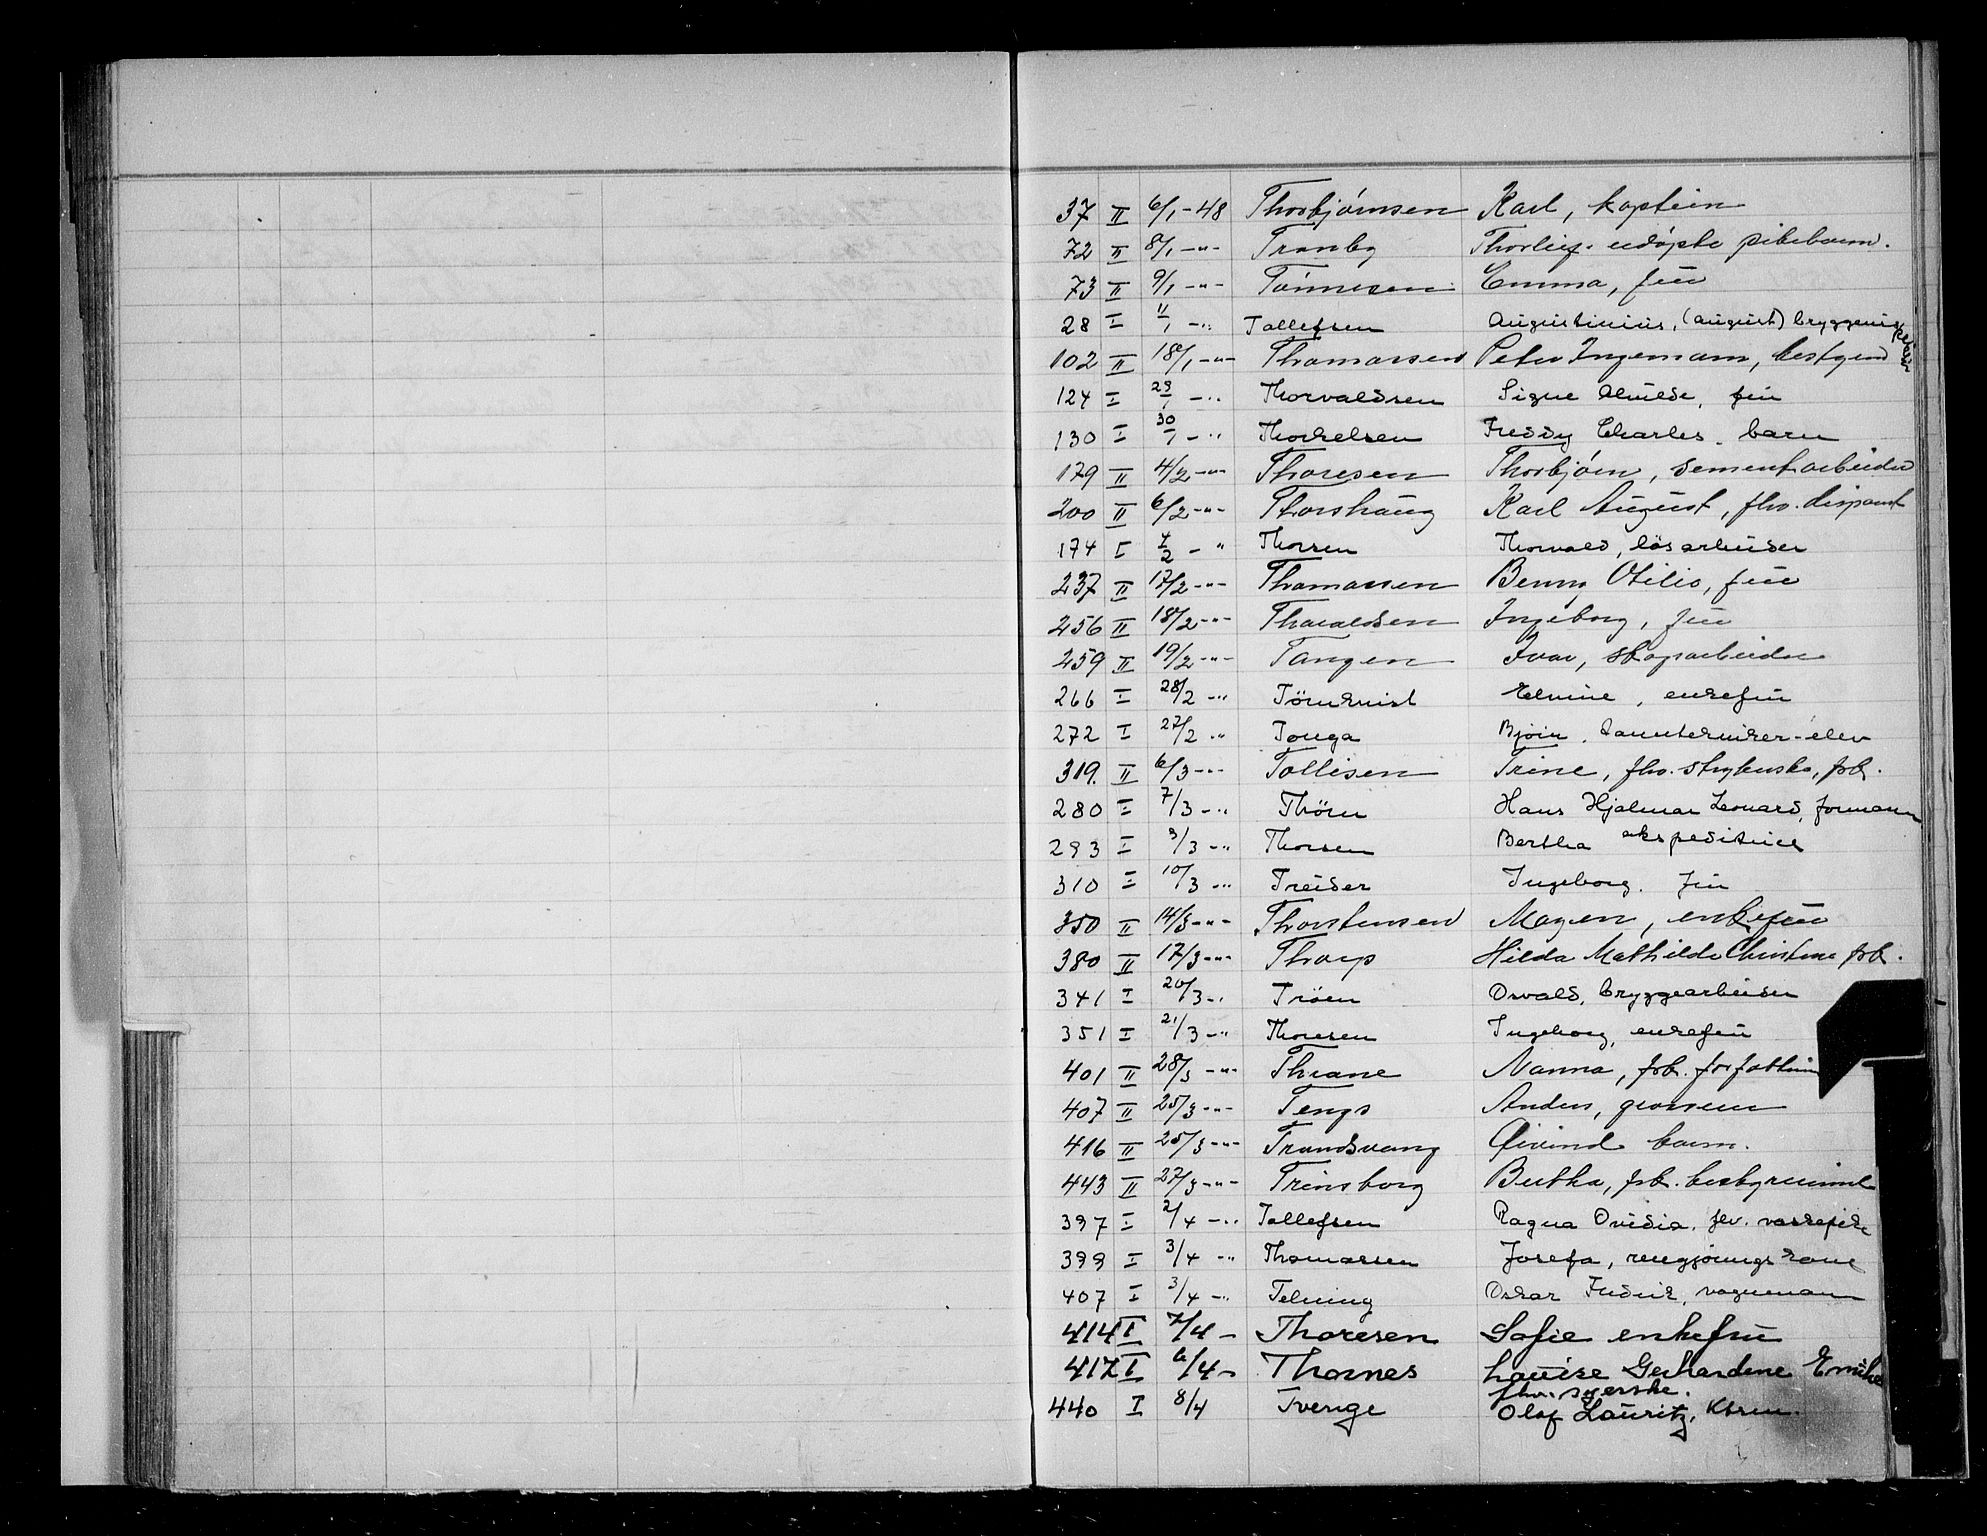 37 II 6/1 - 48 Thorbjørnsen Karl, kaptein
72 II 8/1 -"- Tranby Thorleif. udøpte pikebarn.
73 II 9/1 -"- Tønnesen Emma, frū
28 I 11/1 -" Tollefsen Augustinius, (August)
102 II 18/1 -"- Thomassen Peter Ingemann,
124 I 29/1 -" Thorvaldsen Signe Alvilde, frū
130 I 30/1 -" Thorkelsen Freddy Charles, barn
179 II 4/2 -"- Thoresen Thorbjørn, sementarbeider
200 II 6/2 -"- Thorshaūg Karl Aūgūst, fhv. disponent
174 I 4/2 - " Thorsen Thorvald, løsarbeider
237 II 17/2 -"- Thomassen Benny Otilie, frū
256 II 18/2 -"- Tharaldsen Ingeborg, frū
259 II 19/2 -"- Tangen Ivar, skogsarbeider
266 I 28/2 -" Törnkvist Elmine, enkefrū
272 I 27/2 " Tonga Bjørn, tanntekniker-elev
319. II 6/3 -"- Tollisen Trine, fhv. strykerske, frk.
280 I 7/3 -" Thörn Hans Hjalmar Leonard, formann
293 I 9/3 -" Thorsen Bertha ekspeditrice
310 I 10/3 -" Treider Ingeborg. frū
350 II 14/3 -"- Thorstensen Magen, enkefrūe
380 II 17/3 -"- Thorp Hilda Mathilde Christine frk.
341 I 20/3 -" Tröen Osvald, bryggearbeider
351 I 21/3 -" Thoresen Ingeborg, enkefrū
401 II 28/3 -"- Thrane Nanna, frk.
407 II 25/3 -"- Tengs Anders, grosserer
416 II 25/3 -"- Trandsvang Øivind barn.
443 II 27/3 -"- Trinsborg Bertha, frk. bestyrerinne
397 I 2/4 -" Tollefsen Ragna Ovidia, fhv.
399 I 3/4 -" Thomassen Josefa, rengjøringskone
407 I 3/4 -" Telning Oskar Fredrik, vognmann
414 I 7/4 - Thoresen Sofie enkefrū
417 I 6/4 - Thornes Loūise Gerhardene
fhv. syerske.
440 I 8/4 Tverge Olaf Laūritz,